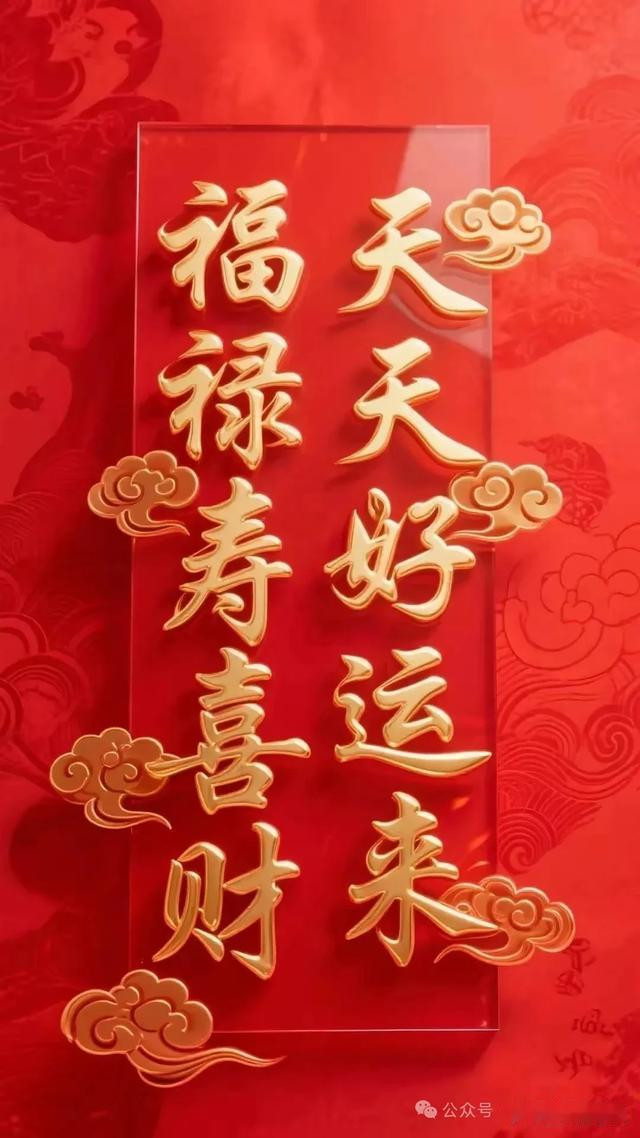 天天好运来
福禄寿喜财
公众号